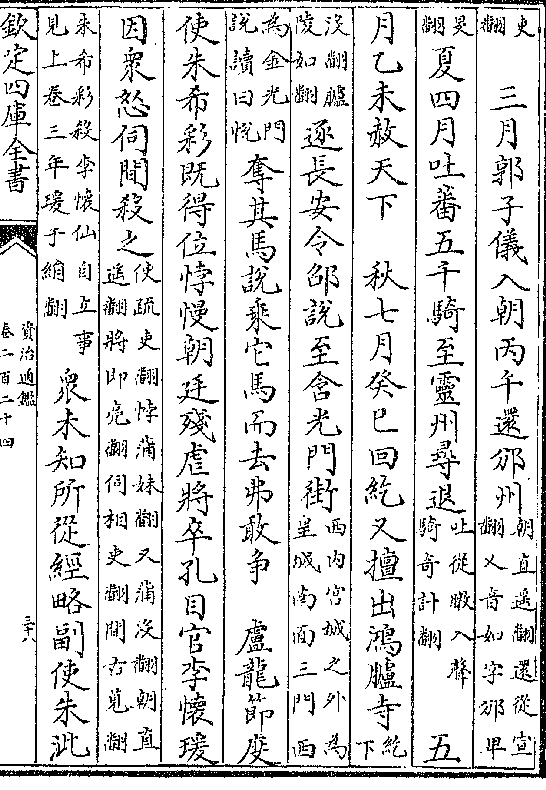 吏翻　三月郭子儀入朝丙午還邠州朝直遥翻還從宣翻又音如字邠卑
旻翻夏四月吐蕃五千騎至靈州尋退吐從暾入聲騎奇計翻　五
月乙未赦天下　秋七月癸巳回紇又擅出鴻臚寺紇下
没翻臚陵如翻逐長安令邵說至含光門街西内宫城之外為皇城南面三門西
為金光門說讀曰悅奪其馬說乘它馬而去弗敢争　盧龍節度
使朱希彩既得位悖慢朝廷殘虐將卒孔目官李懷瑗
因衆怒伺間殺之使疏吏翻悖蒲妹翻又蒲没翻朝直遥翻將即亮翻伺相吏翻間古莧翻
朱希彩殺李懷仙自立事見上卷三年瑗于絹翻　衆未知所從經略副使朱泚
欽定四庫全書
資治通鑑
卷二百二十四
三十八